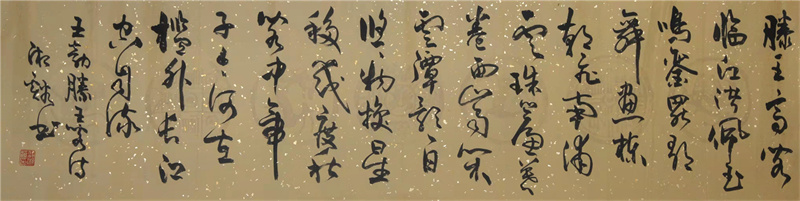 滕王高閣
臨江渚佩玉
鳴鑾罷歌
舞畫棟
朝飛南浦
雲珠簾暮
卷西山雨閑
雲潭影日
悠々物換星
移幾度秋
閣中帝
子今何在
檻外長江
空自流
王勃滕王閣詩
書